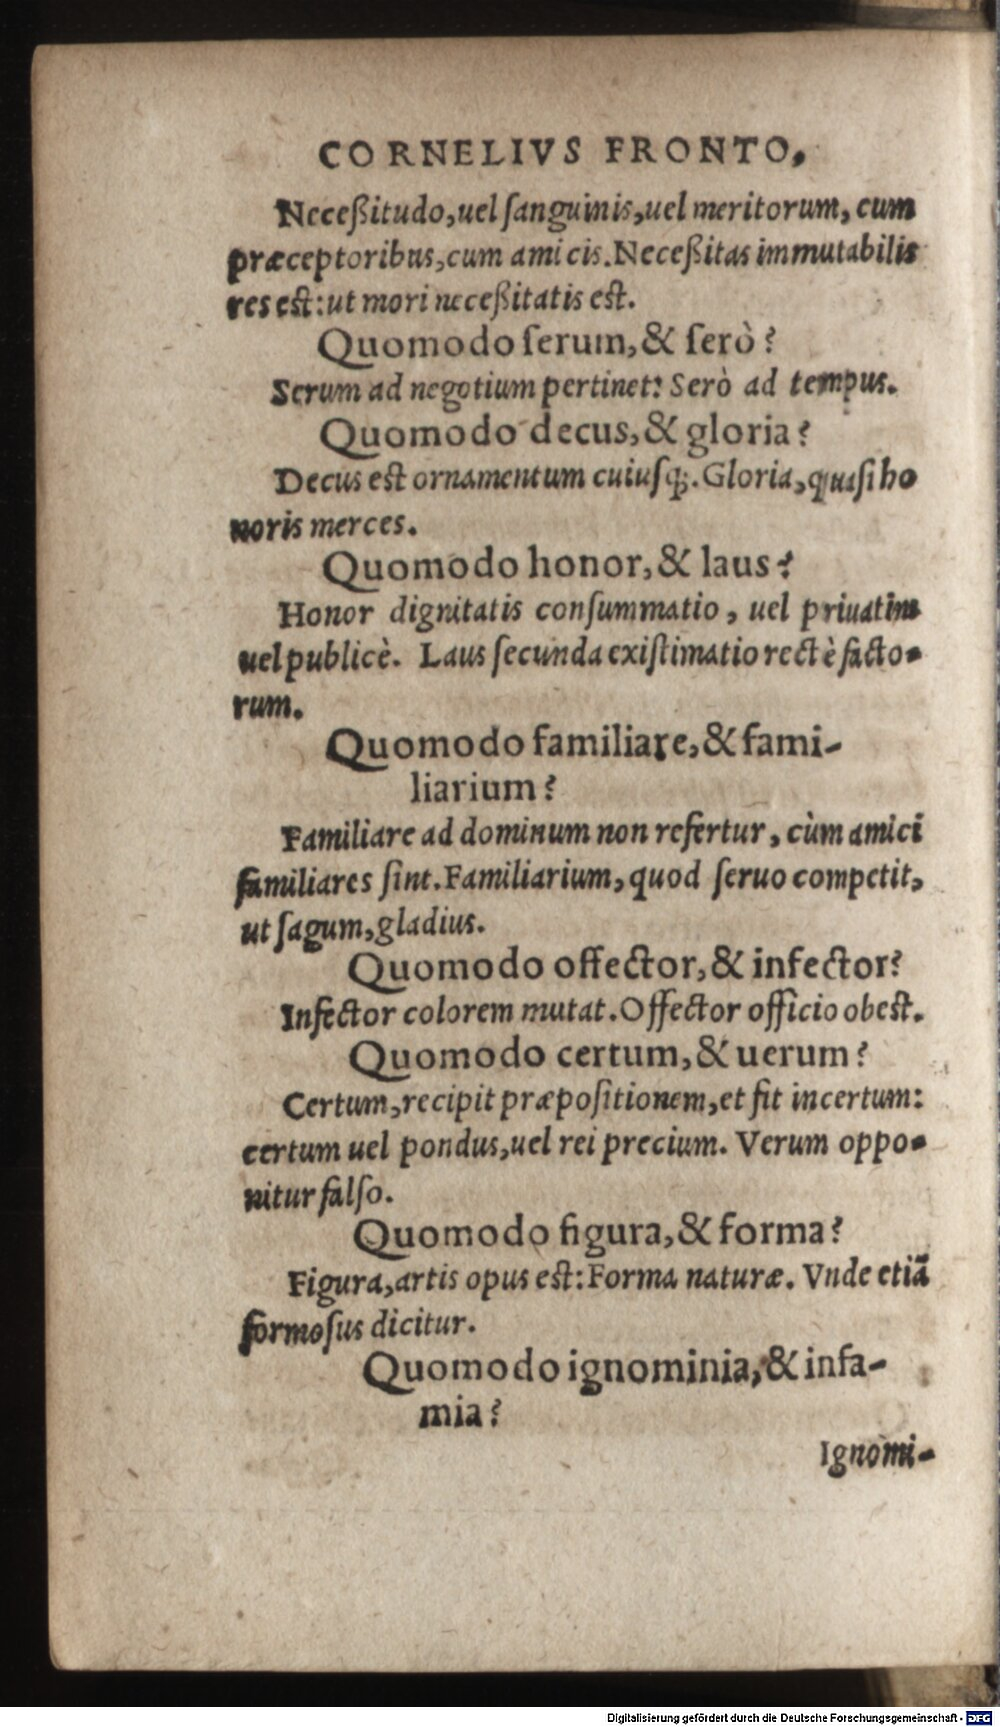 CORNELIVS FRONTO,
Neceßitudo, uel ſanguinis, uel meritorum, cum
præceptoribus, cum amicis. Neceßitas immutabilis
res est: ut mori neceßitatis est.
Quomodo ſerum, & ſerò?
Serum ad negotium pertinet: Serò ad tempus.
Quomodo decus, & gloria?
Decus est ornamentum cuiuſq;. Gloria, quaſi ho
noris merces.
Quomodo honor, & laus?
Honor dignitatis conſummatio, uel priuatim
uel publicè. Laus ſecunda exiſtimatio rectè facto-
rum.
Quomodo familiare, & fami-
liarium?
Familiare ad dominum non refertur, cùm amici
familiares ſint. Familiarium, quod ſeruo competit,
ut ſagum, gladius.
Quomodo offector, & infector?
Infector colorem mutat. Offector officio obest.
Quomodo certum, & uerum?
Certum, recipit præpoſitionem, et fit incertum:
certum uel pondus, uel rei precium. Verum oppo-
nitur falſo.
Quomodo figura, & forma?
Figura, artis opus est: Forma naturæ. Vnde etiã
formoſus dicitur.
Quomodo ignominia, & infa-
mia?
Ignomi-
Digitalisierung gefördert durch die Deutsche Forschungsgemeinschaft - DFG